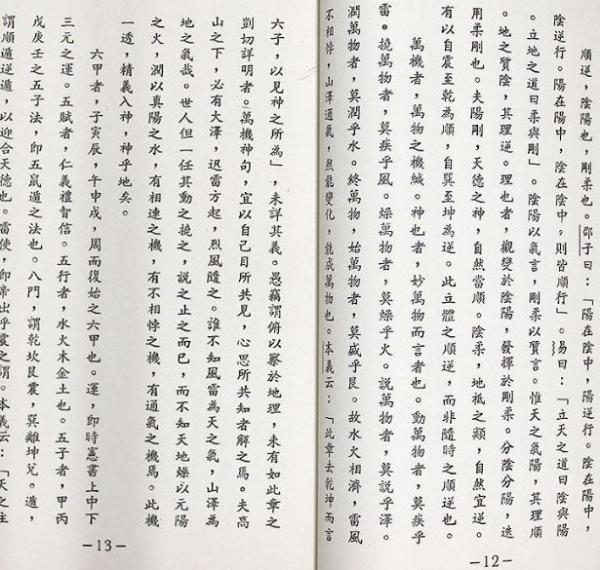 順逆，陰陽也，剛柔也。邵子曰：「陽在陰中，陽逆行。陰在陽中，
陰逆行。陽在陽中，陰在陰中，則皆順行」。易曰：「立天之道曰陰與陽
。立地之道曰柔與剛」。陰陽以氣言，剛柔以質言。惟天之氣陽，其理順
。地之質陰，其理逆。理也者，觀變於陰陽，發揮於剛柔。分陰分陽，迭
用柔剛也。夫陽剛，天德之神，自然當順。陰柔，地祇之類，自然宜逆。
有以自震至乾為順，自巽至坤為逆。此立體之順逆，而非隨時之順逆也。
萬機者，萬物之機緘。神也者，妙萬物而言者也。動萬物者，莫疾乎
雷。撓萬物者，莫疾乎風。燥萬物者，莫燥乎火。說萬物者，莫說乎澤。
潤萬物者，莫潤乎水。終萬物，始萬物者，莫盛乎艮。故水火相濟，雷風
不相悖，山澤通氣，然能變化，能成萬物也。本義云：「此章去乾坤而言
－12－
六子，以見神之所為」，未詳其義。愚竊謂俯以察於地理，未有如此章之
剴切詳明者。萬機神句，宜以自己目所共見，心思所共知者解之焉。夫高
山之下，必有大澤，迅雷方起，烈風隨之。誰不知風雷為天之氣，山澤為
地之氣哉。世人但一任其動之撓之，說之止之而已，而不知天地燥以元陽
之火，潤以真陽之水，有相逮之機，有不相悖之機，有通氣之機焉。此機
一透，精義入神，神乎地矣。
六甲者，子寅辰，午申戌，周而復始之六甲也。運，即時憲書上中下
三元之運。五賦者，仁義禮智信。五行者，水火木金土也。五子者，甲丙
戊庚壬之五子法，即五鼠遁之法也。八門，謂乾坎艮震，巽離坤兌。遁，
謂順遁逆遁，以迎合天德也。雷使，即帝出乎震之謂。本義云：「天之主
－13－